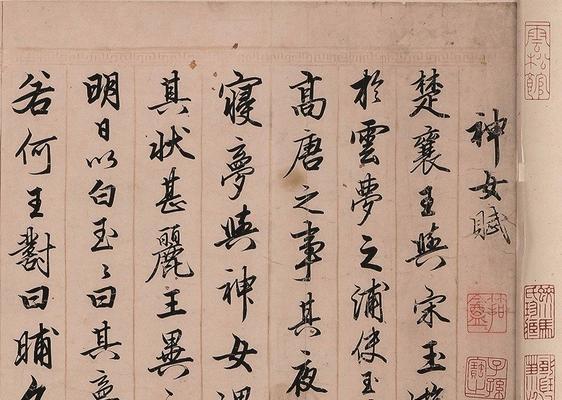 神女賦
楚襄王與宋玉遊
於雲夢之浦使玉
高唐之事其夜
寢夢與神女遇
其狀甚麗王異之
明日以白玉玉曰其夢
若何王對曰晡夕
雲松館